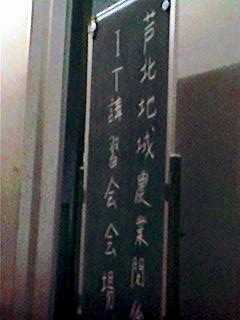 芦北地域農業関係
IT講習会会場